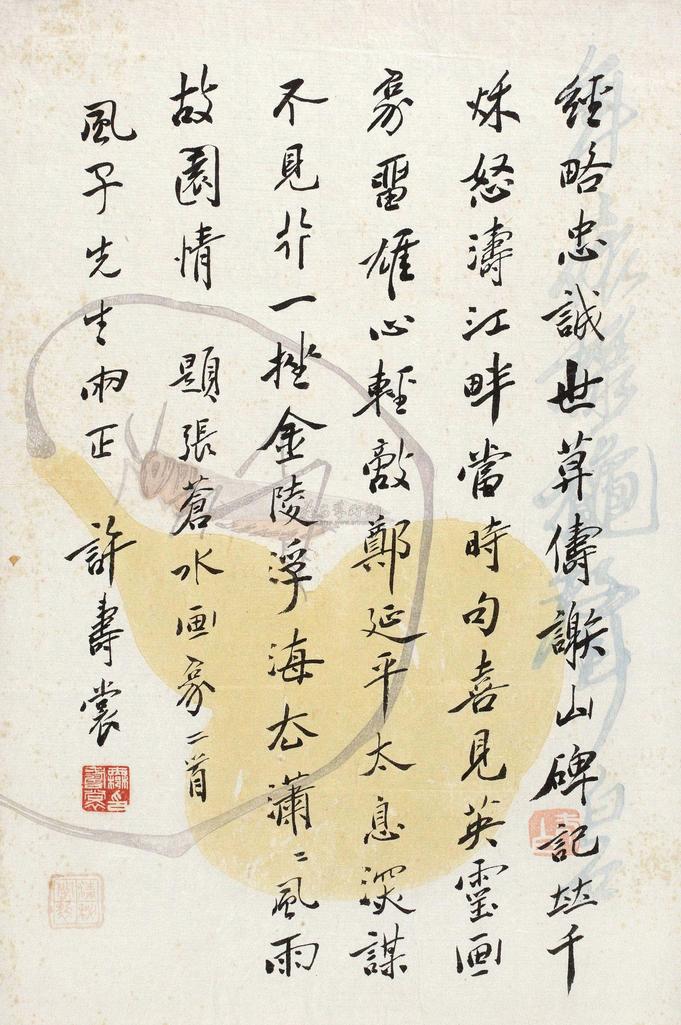 經略忠誠世莫儔謝山碑記千
秌怒濤江畔當時句喜見英靈画
象畱雄心輕敵鄭延平太息深謀
不見行一挫金陵浮海去瀟〻風雨
故園情 題張蒼水画象二首
風子先生兩正 許壽裳